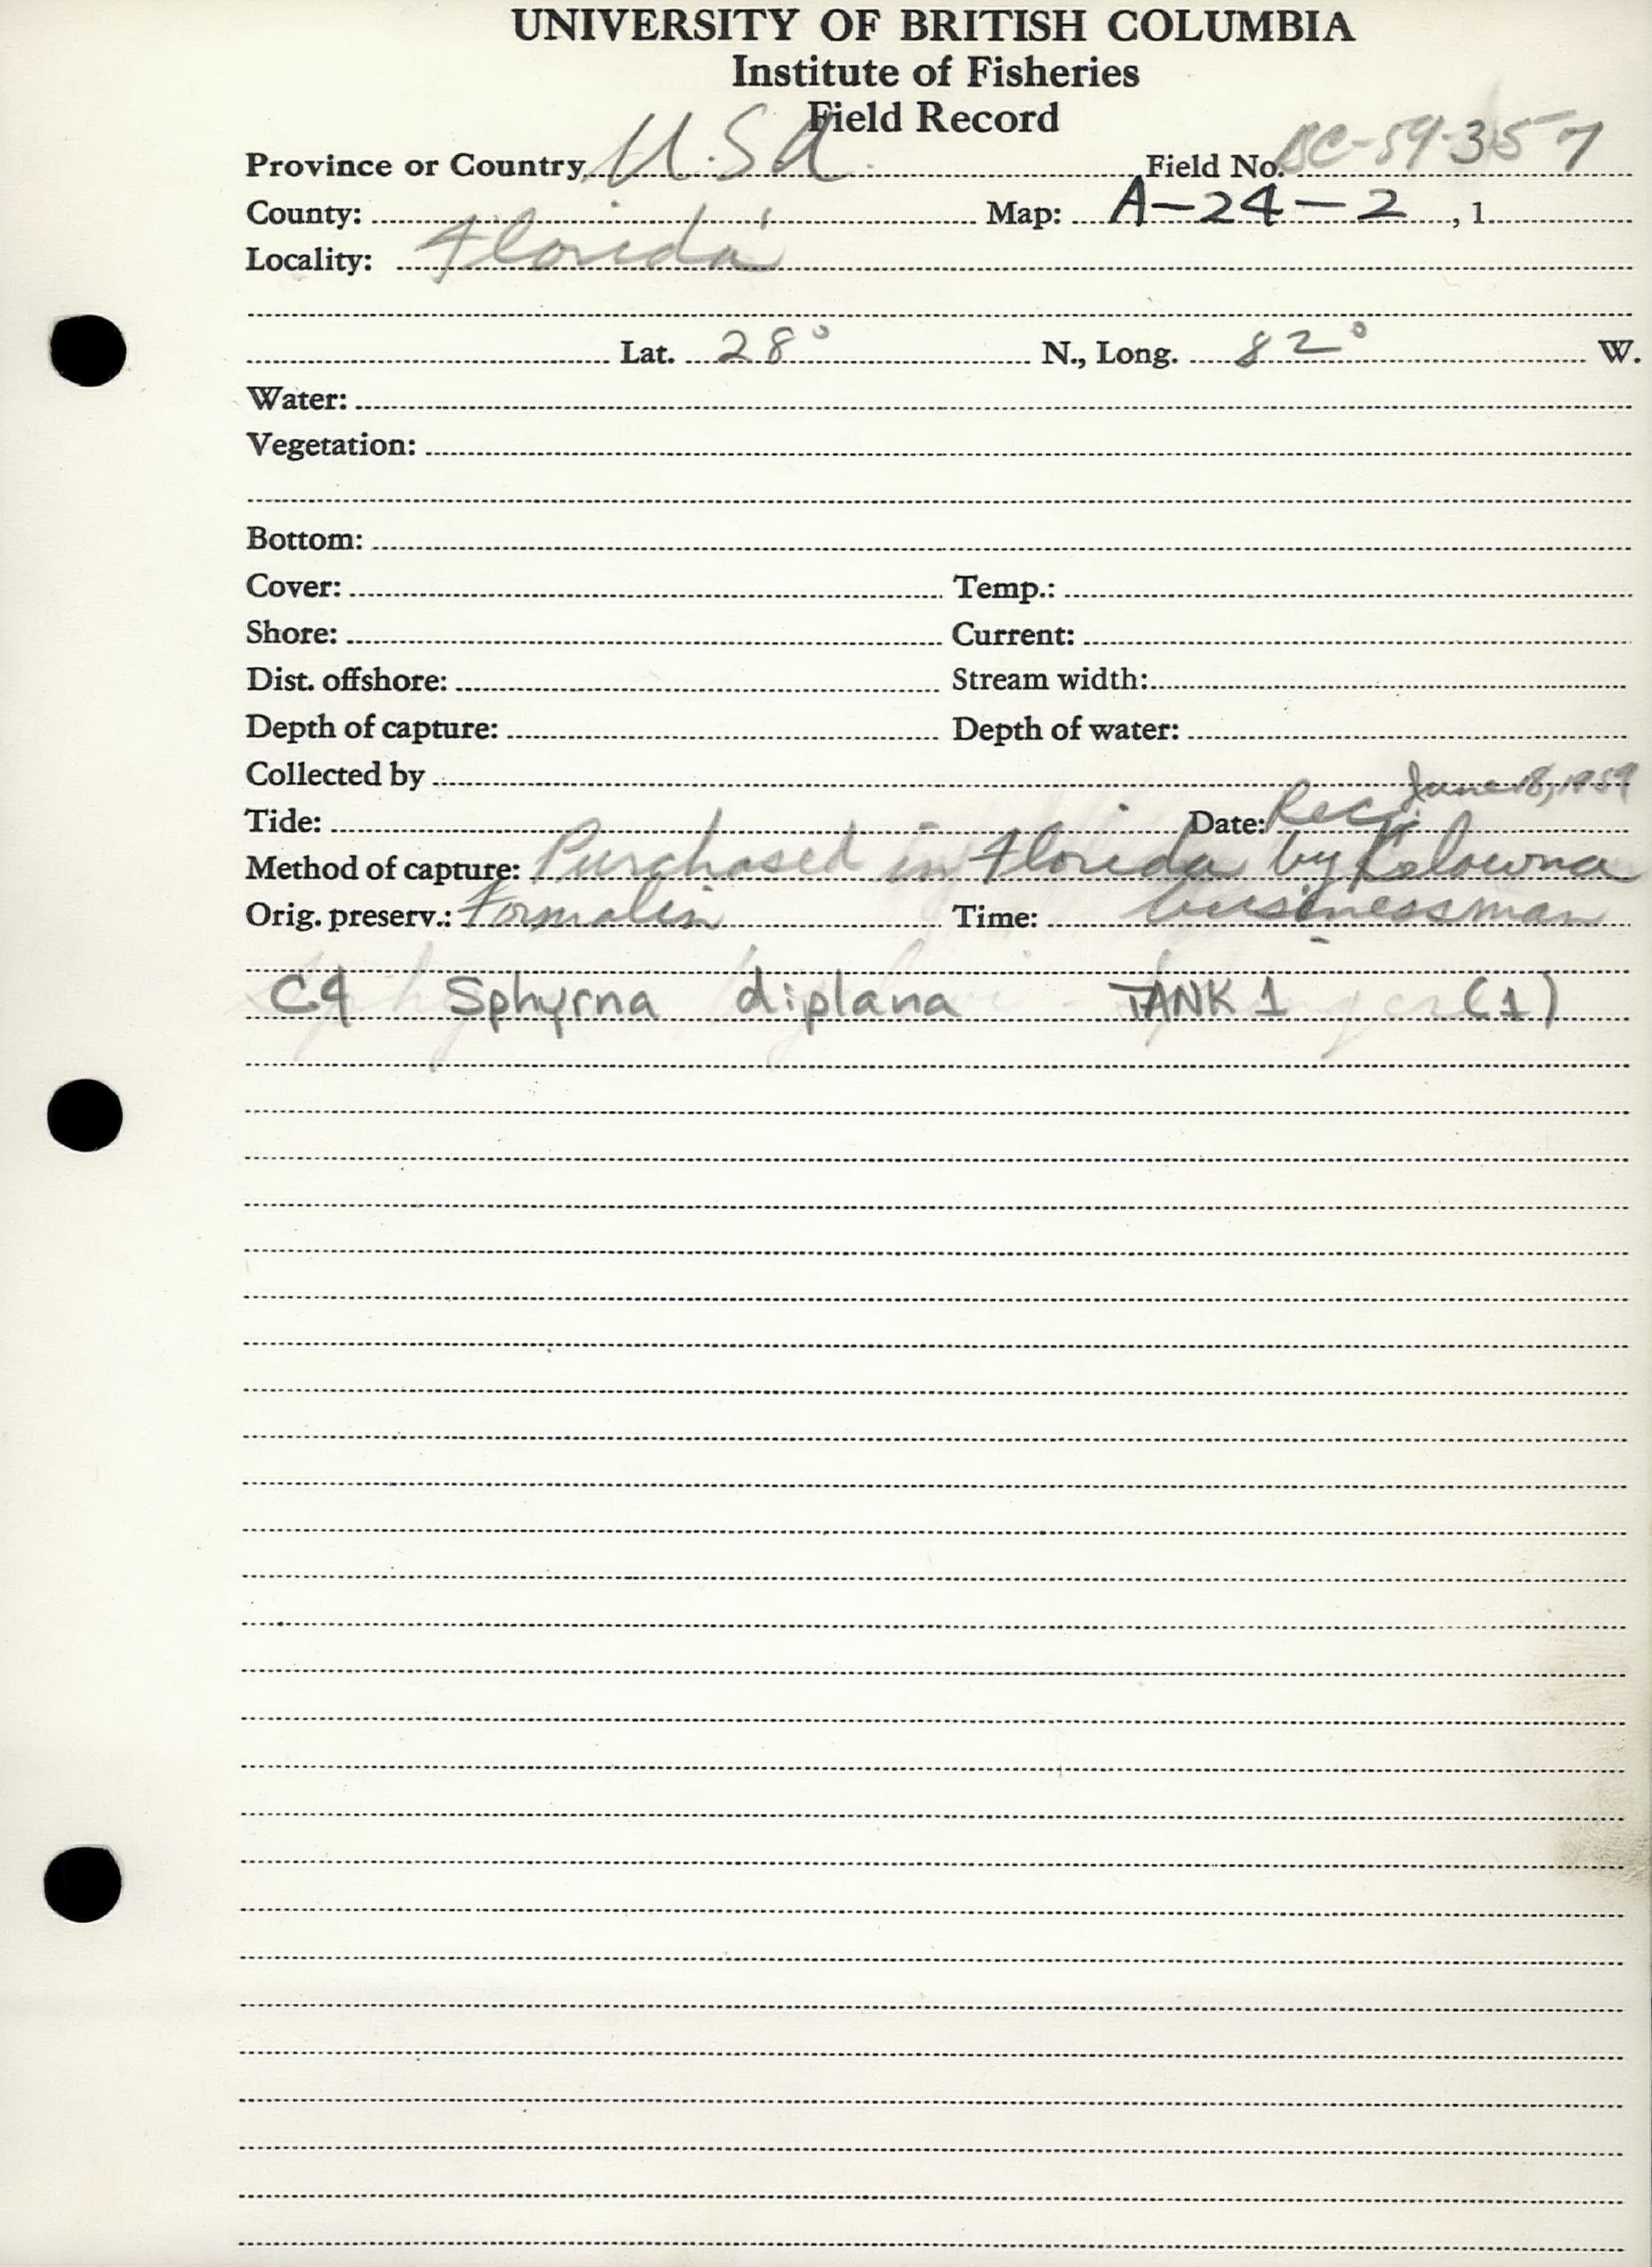 UNIVERSITY OF BRITISH COLUMBIA
Institute of Fisheries
Field Record
Province or Country U.S.A. Field No. BC-59-357
County: Map: A-24-2, 1
Locality: Florida
Lat. 28° N., Long. 82° W.
Water:
Vegetation:
Bottom:
Cover: Temp.:
Shore: Current:
Dist. offshore: Stream width:
Depth of capture: Depth of water:
Collected by
Tide: Date: Rec. June 18, 1959
Method of capture: Purchased in Florida by Kelowna
Orig. preserv.: Formalin Time: businessman
C9 Sphyrna diplana TANK 1 (1)